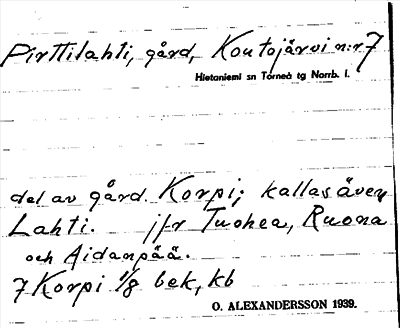 Pirttilahti, gård, Koutojärvi n:r 7
Hietaniemi sn Torneå tg Norrb. l.
del av gård Korpi; kallas även
Lahti. jfr Tuohea, Ruona
och Aidanpää.
7 Korpi 1/8 bek, kb
O. ALEXANDERSSON 1939.